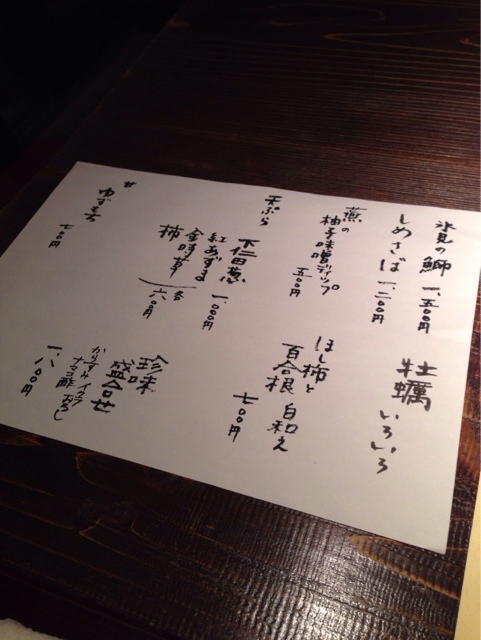 氷見の鰤 一、五〇〇円
しめさば 一、二〇〇円
牡蠣いろいろ
蕪の
柚子味噌ディップ
五〇〇円
ほし柿と
百合根 白和え
七〇〇円
天ぷら
下仁田葱 一、〇〇〇円
紅あずま
金時草
柿
各 六〇〇円
珍味
盛合せ
からすみ イクラ
ナマコ酢
一、八〇〇円
甘
ゆず
七〇円